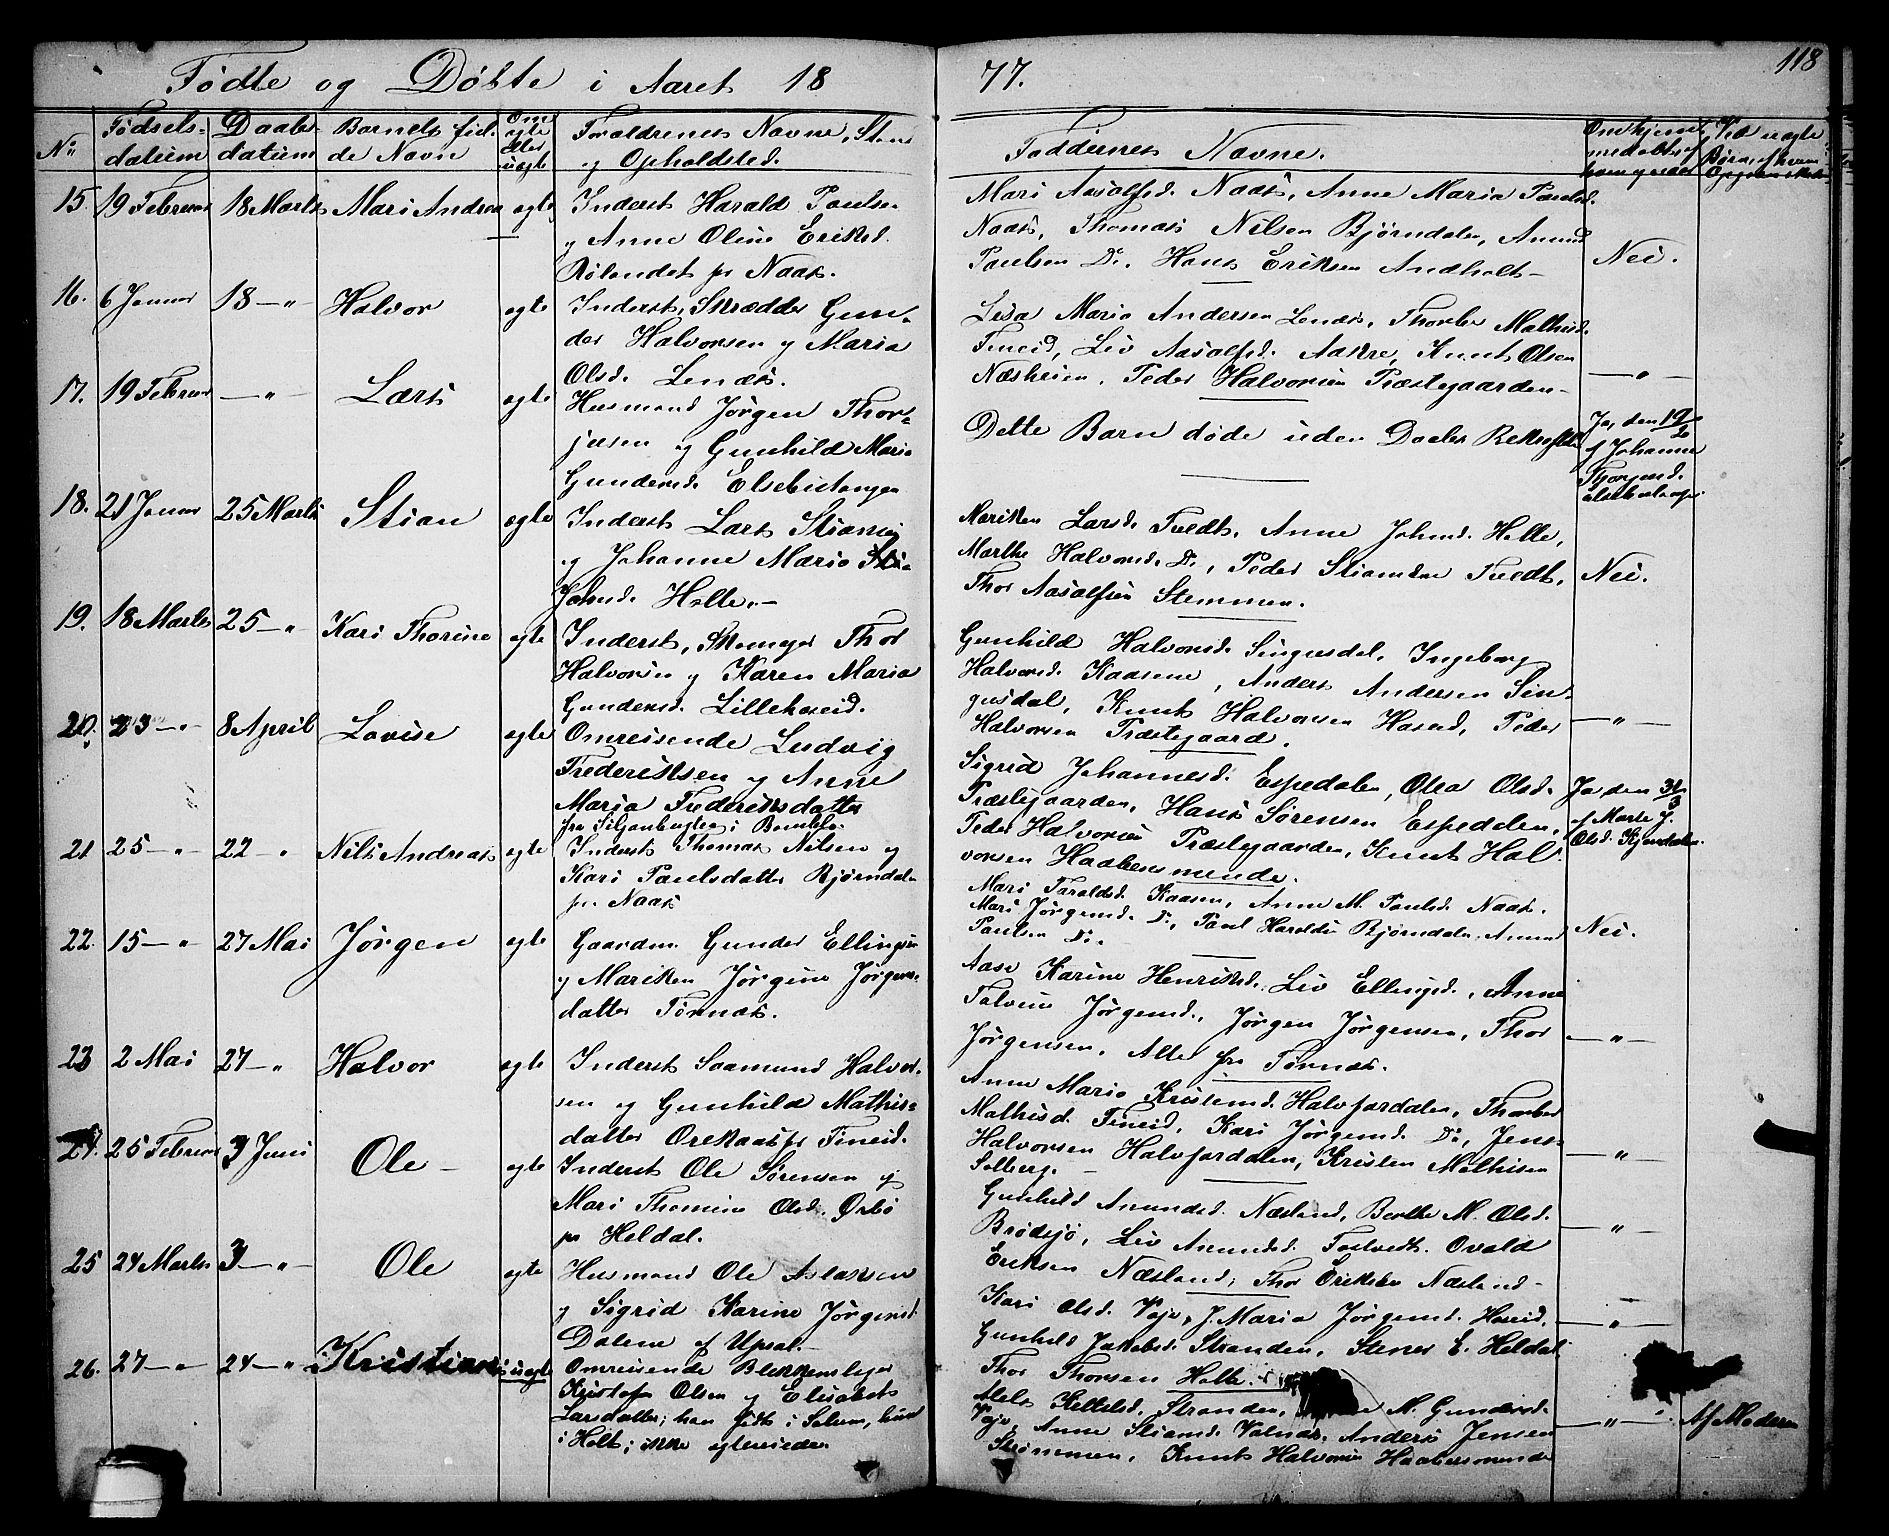 118
Fødte og Døbte i Aaret 18 77.
No Fødselsdatum Daabsdatum Barnets fulde Navn Om ægte eller uægte Forældrenes Navne, Stand og Opholdsted. Faddernes Navne.
15. 19 Februar 18 Marts Mari Andrea ægte Inderst Harald Paulsen
y Anne Oline Eriksd.
Rølandet pr Naas.
Mari Aasolfsd. Naas, Anne Maria Paulsd.
Naas, Thomas Nilsen Bjørndalen, Amund
Paulsen Do, Hans Eriksen Andholt -
Nei.
16. 6 Januar 18 - " Halvor ægte Inderst, Skrædder Gun-
der Halvorsen y Maria
Olsd. Lenæs.
Lisa Maria Andersen Lenæs, Thorbor Mathisd.
Fineid, Liv Aasolfsd. Aakre, Knut Olsen
Næsheien, Peder Halvorsen Præstegaarden -
- " -
17. 19 Februar - " - Lars ægte Husmand Jørgen Thor-
jusen y Gunhild Maria
Gundersd. Elsebistangen
Dette Barn døde uden Daabs Bekræftelse
Ja, den 19/2
af Johanne
18. 21 Januar 25 Marts Stian ægte Inderst Lars Stians.
y Johanne Maria
Johnsd. Helle. -
Mariken Larsd. Tvedt, Anne Johnsd. Helle,
Marthe Halvorsd. Do, Peder Stiansen Tvedt,
Thor Aasolfsen Stemmen.
Nei.
19. 18 Marts 25 - " Kari Thorine ægte Inderst, Skomager Thor
Halvorsen y Karen Maria
Gundersd. Lillekaseid.
Gunhild Halvorsd. Singusdal, Ingeborg
Halvorsd. Kaasene, Anders Andersen Sin-
gusdal, Knut Halvorsen Haseid, Peder
Halvorsen Præstegaard.
- " -
20. 23 - " 8 April Lovise ægte Omreisende Ludvig
Frederiksen y Anne
Maria Frederiksdatter
fra Siljanbugten i Bamble.
Sigrid Johannesd. Espedalen, Olea Olsd.
Præstegaarden, Hans Sørensen Espedalen,
Peder Halvorsen Præstegaarden, Knut Hal-
vorsen Haabesmende.
Ja, den 31/3
af Marte J.
Olsd. Kjendalen.
21 25 - " 22 - " Nils Andreas ægte Inderst Thomas Nilsen y
Kari Paulsdatter Bjørndalen
pr. Naas
Mari Taraldsd. Kaasen, Anne M. Paulsd. Naas.
Mari Jørgensd. Do, Paul Haraldsen Bjørndalen, Amund
Paulsen Do.
Nei.
22. 15 - " 27 Mai Jørgen ægte Gaardm. Gunder Ellingsen
y Mariken Jørgine Jørgens-
datter Tørnæs.
Aase Karine Henriksd. Liv Ellingsd., Anne
Talvine Jørgensd., Jørgen Jørgensen, Thor
Jørgensen, Alle fra Tørnæs.
- " -
23 2 Mai 27 - " Halvor ægte Inderst Saamund Halvor-
sen y Gunhild Mathis-
datter Orekaas pr Fineid.
Anne Maria Kristensd. Halvfardalen, Thorbor
Mathisd. Fineid, Kari Jørgensd. Do, Jens
Halvorsen Halvfardalen, Kristen Mathisen
Solberg. -
- " -
24. 25 Februar 3 Juni Ole - ægte Inderst Ole Sørensen y
Mari Thomine Olsd. Ørbø
pr Heldal.
Gunhild Amundsd. Næsland, Berthe M. Olsd.
Brødsjø, Liv Amundsd. Tostvedt. Ovald
Eriksen Næsland, Thor Eriksen Næsland -
- " -
25 24 Marts 3 - " - Ole ægte Husmand Ole Aslaksen
y Sigrid Karine Jørgensd.
Dalene af Upsal. -
Kari Olsd. Vaje, J. Maria Jørgensd. Haseid,
Gunhild Jakobsd. Stranden, Stener E. Heldal
Thor Thorsen Helle.
- " -
26. 27 - " 24 - " Kristian uægte Omreisende Blikkenslager
Kristofer Olsen y Elisabet
Larsdatter; han født i Solum, hun
i Holt; ikke egteviede.
Kittelsd. Stranden, N. Gundersd.
Vaje, Anne Stiansd. Valnæs. Anders Jensen
Strømmen, Knut Halvorsen Haabesmende
- " -
Af Moderen